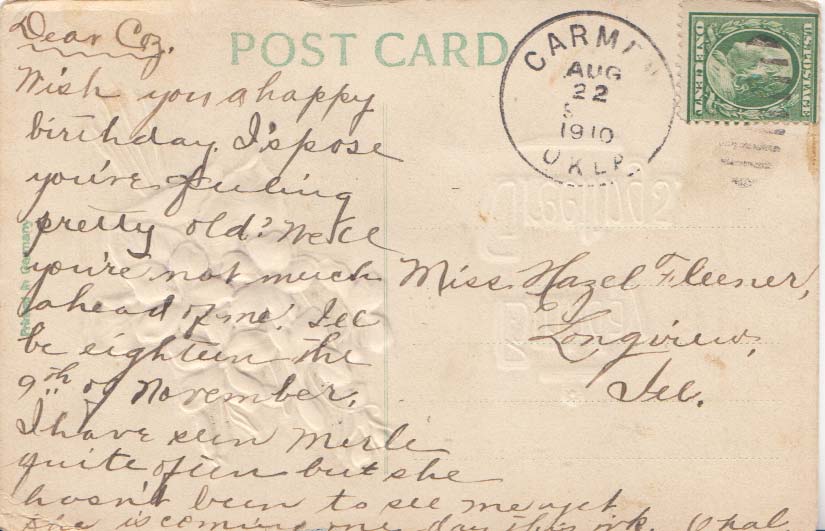 Dear Coz.
Wish you a happy
birthday. I's'pose
you're feeling
pretty old? Well
you're not much
ahead of me. I'll
be eighteen the
9th of November.
I have seen Merle
quite often but she
hasn't been to see me yet.
She is coming one day this wk. Opal
POST CARD
CARMEN
AUG
22
1910
OKLA.
U.S. POSTAGE
ONE CENT
Miss Hazel Fleener,
Longview,
Ill.
Printed in Germany